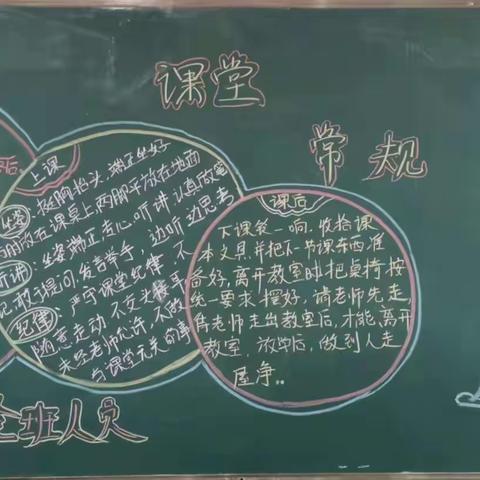 课堂
常规
后
上课
坐姿:挺胸抬头,端正坐好
两脚平放在地面
放在课桌上
坐姿端正,专心听讲,认真做笔
听讲:
记,积极提问,发言举手,边听边思考
纪律:严守课堂纪律,不
随意走动,不交头接耳,
未经老师允许,不做
与课堂无关的事
课后
下课铃一响,收拾课
本文具,并把下一节课东西准
备好,离开教室时把桌椅按
统一要求摆好,请老师先走,
等老师走出教室后,才能离开
教室,放学后,做到人走
屋净。
全班人员